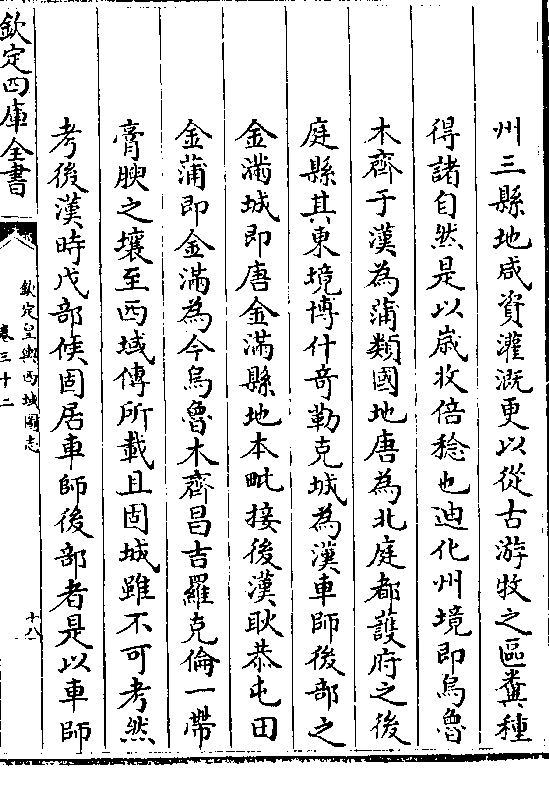 州三縣地咸資灌溉更以從古游牧之區糞種
得諸自然是以歲收倍稔也迪化州境即烏魯
木齊于漢為蒲類國地唐為北庭都護府之後
庭縣其東境博什奇勒克城為漢車師後部之
金滿城即唐金滿縣地本毗接後漢耿恭屯田
金蒲即金滿為今烏魯木齊昌吉羅克倫一帶
膏腴之壤至西域傳所載且固城雖不可考然
考後漢時戊部候固居車師後部者是以車師
欽定四庫全書
欽定皇輿西域圖志
卷三十二
十八